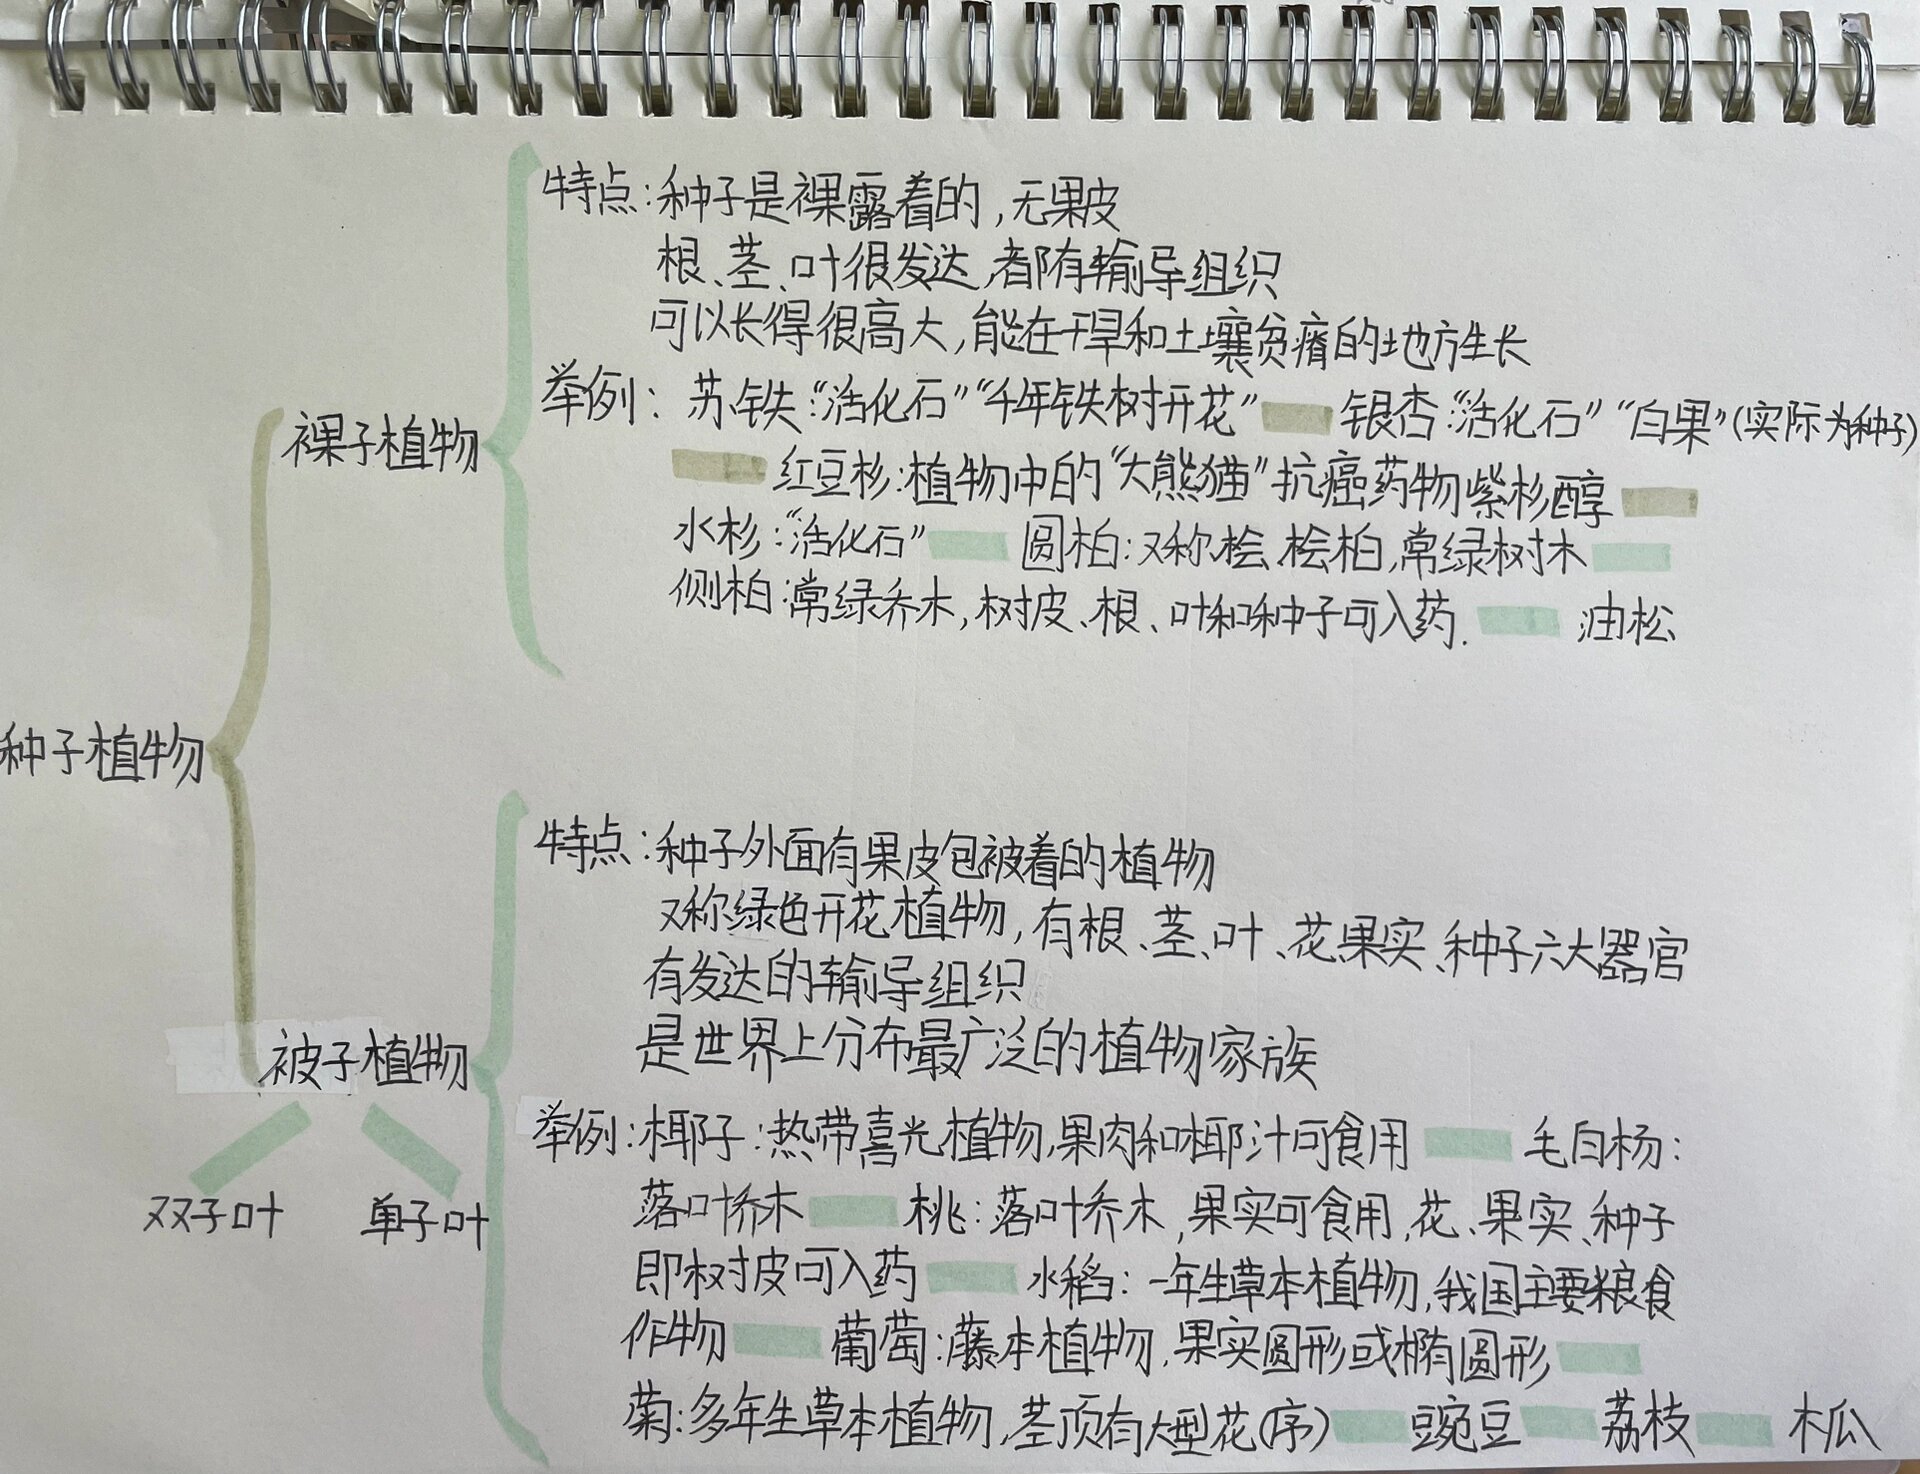 特点：种子是裸露着的，无果皮
根、茎、叶很发达，都有输导组织
可以长得很高大，能在干旱和土壤贫瘠的地方生长
举例：苏铁：“活化石”“千年铁树开花” 银杏：“活化石”“白果”（实际为种子）
裸子植物
红豆杉：植物中的“大熊猫”抗癌药物紫杉醇
水杉：“活化石” 圆柏：又称桧、桧柏，常绿树木
侧柏：常绿乔木，树皮、根、叶和种子可入药. 油松
种子植物
特点：种子外面有果皮包被着的植物
又称绿色开花植物，有根、茎、叶、花、果实、种子六大器官
有发达的输导组织
是世界上分布最广泛的植物家族
被子植物
举例：椰子：热带喜光植物，果肉和椰汁可食用 毛白杨：
落叶乔木 桃：落叶乔木，果实可食用，花、果实、种子
双子叶 单子叶
即树皮可入药 水稻：一年生草本植物，我国主要粮食
作物 葡萄：藤本植物，果实圆形或椭圆形
菊：多年生草本植物，茎顶有大型花（序） 豌豆 荔枝 木瓜